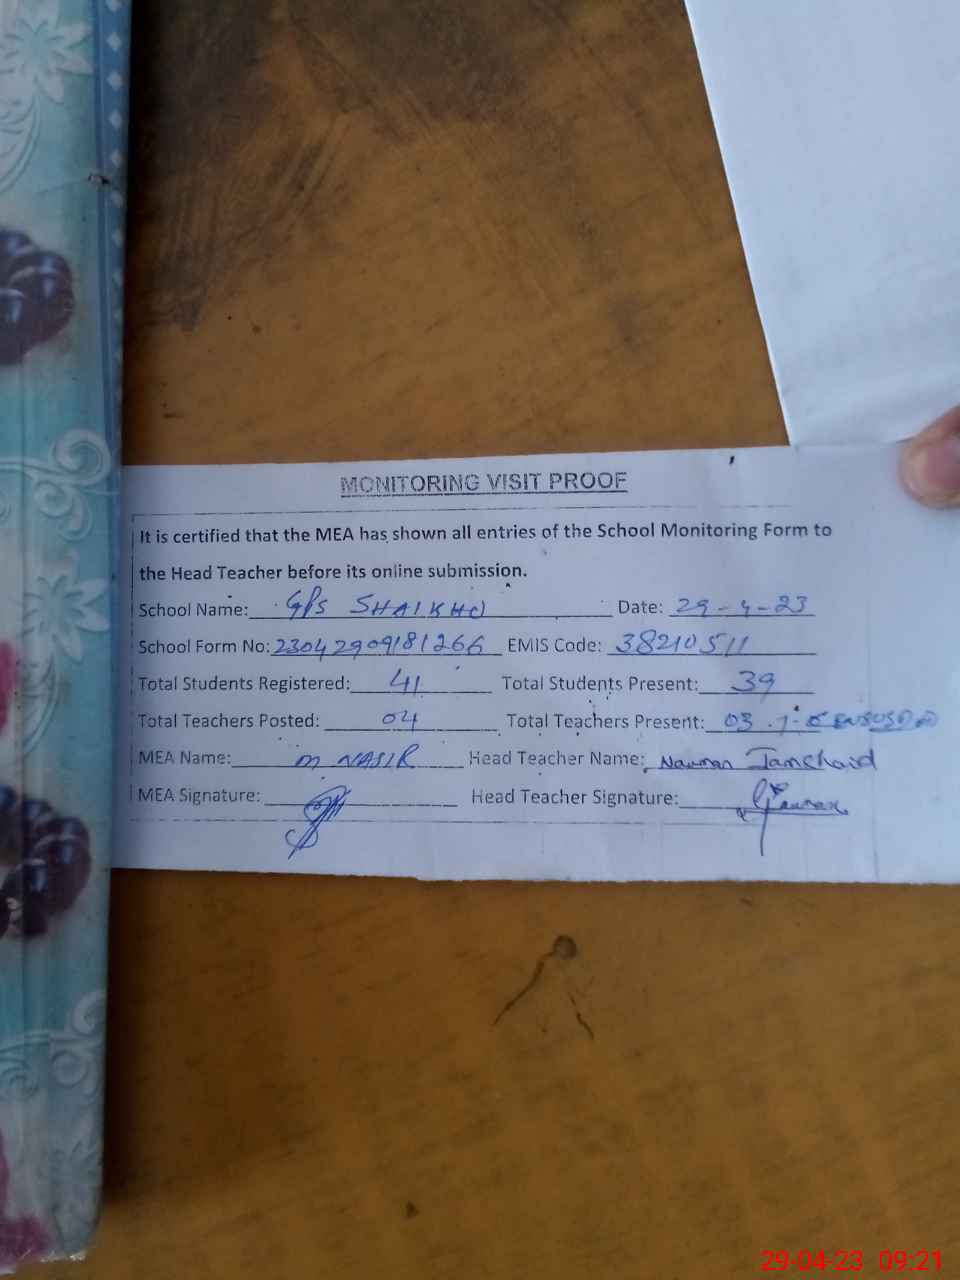 MONITORING VISIT PROOF
It is certified that the MEA has shown all entries of the School Monitoring Form to
the Head Teacher before its online submission.
School Name: GPS SHAIKHO Date: 29-4-23
School Form No: 23042909181266 EMIS Code: 38210511
Total Students Registered: 41 Total Students Present: 39
Total Teachers Posted: 04 Total Teachers Present: 03
MEA Name: M NASIR Head Teacher Name: Nauman Jamshaid
MEA Signature: Head Teacher Signature:
29-04-23 09:21